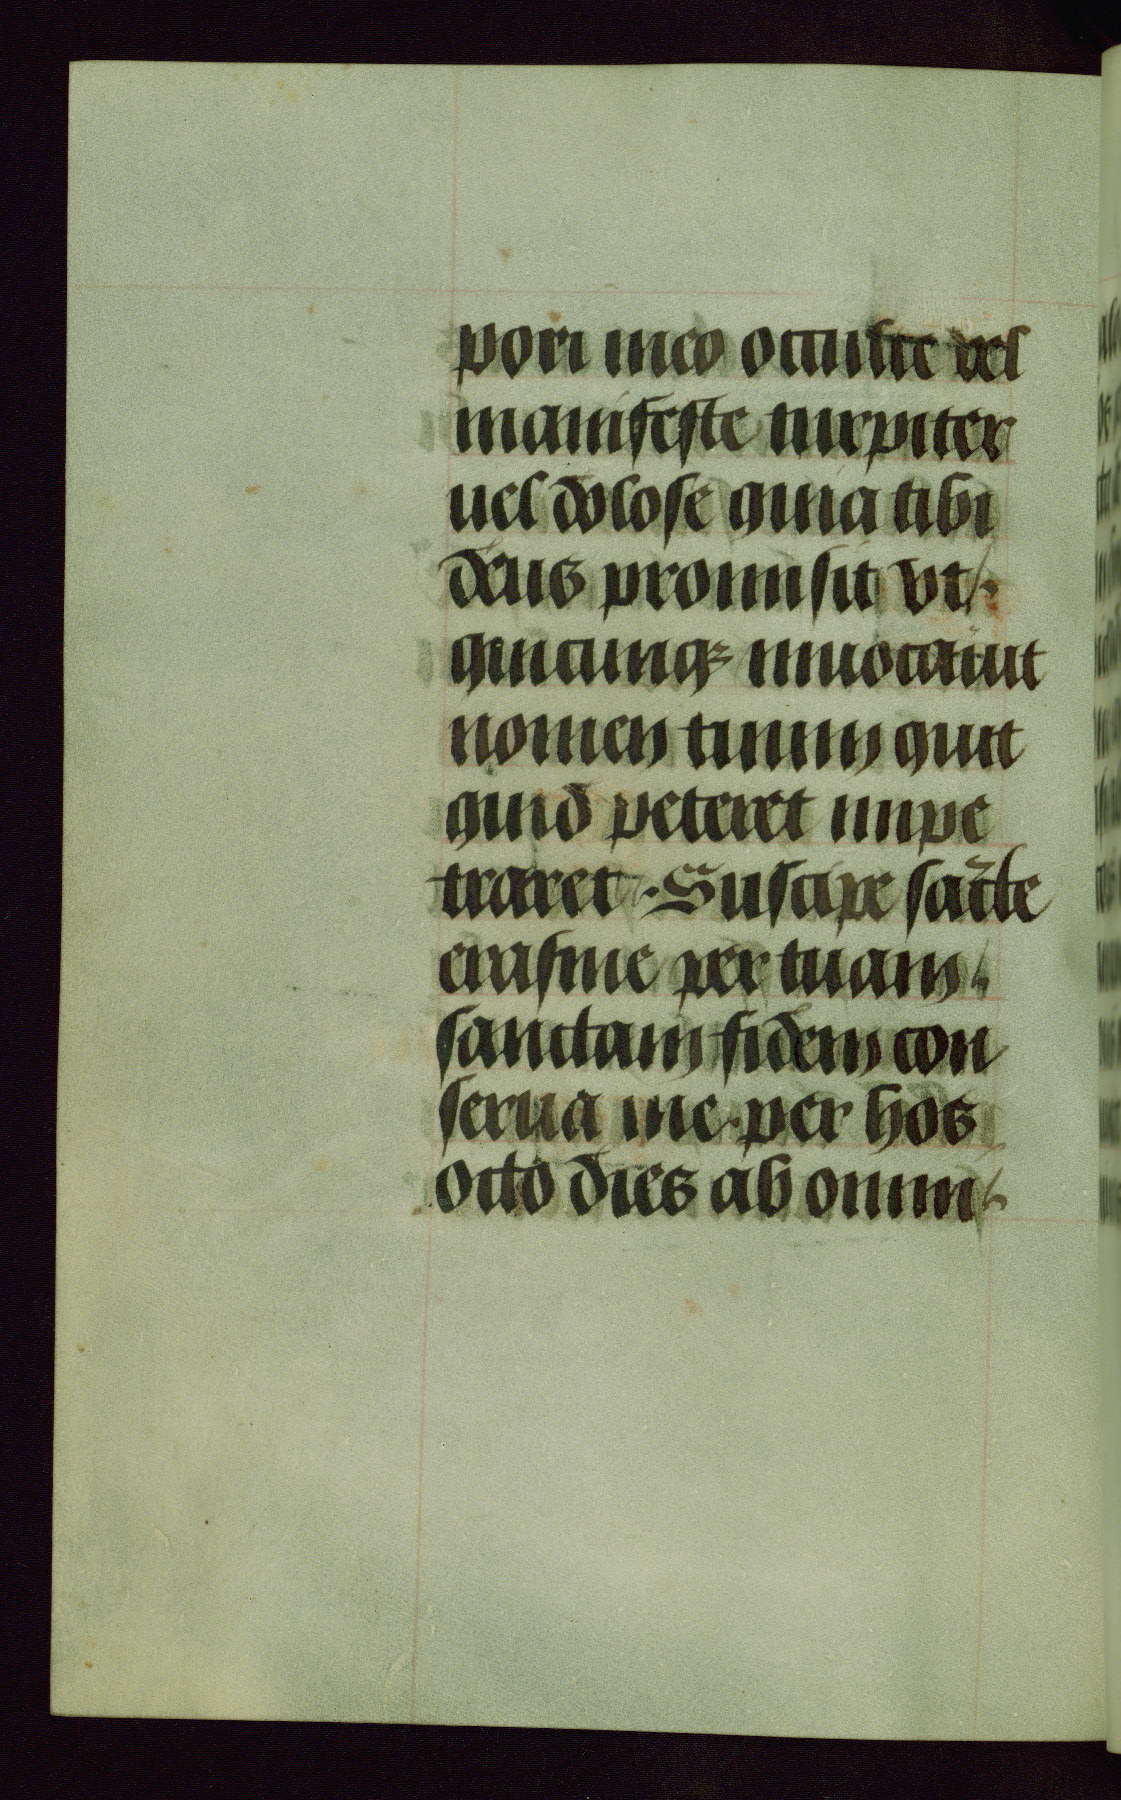 pori meo occulte vel
manifeste turpiter
uel dolose quia tibi
deus promisit vt
quicunqꝫ inuocauit
nomen tuum quit
quid peteret impe
traret · Suscipe sācte
erasme per tuam
sanctam fidem con
serua me · per hos
octo dies ab omni